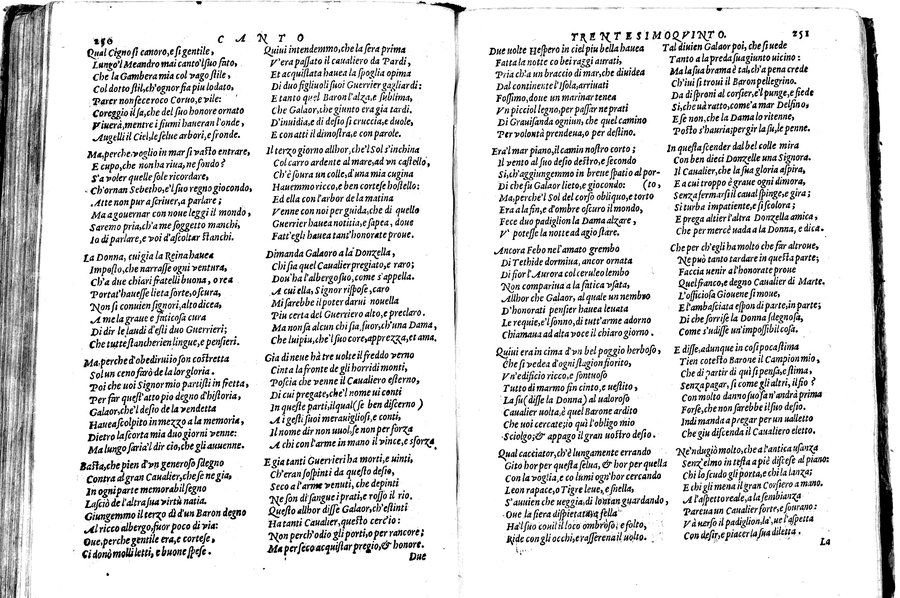 250 CANTO
Qual Cigno sì canoro, e sì gentile,
Lungo'l Meandro mai canto'l suo fato,
Che la Gambera mia col vago stile,
Col dotto stil, ch'ognor fia piu lodato,
Parer non fece roco Coruo, e vile:
Coreggio il sa, che del suo honore ornato
Viuerà, mentre i fiumi haueran l'onde,
Augelli il Ciel, le selue arbori, e fronde.
Ma, perche voglio in mar sì vasto entrare,
E cupo, che non ha riua, ne fondo?
S'a voler quelle sole ricordare,
Ch'ornan Sebetho, e'l suo regno giocondo,
Atte non pur a scriuer, a parlare;
Ma a gouernar con noue leggi il mondo,
Saremo pria, ch'a me soggetto manchi,
Io di parlare, e voi d'ascoltar stanchi.
La Donna, cui gia la Reina hauea
Imposto, che narrasse ogni ventura,
Ch'a due chiari fratelli buona, o rea
Portat'hauesse lieta sorte, o scura,
Non si conuien signori, alto dicea,
A me la graue e faticosa cura
Di dir le laudi d'esti duo Guerrieri;
Che tutte stancherien lingue, e pensieri.
Ma, perche d'obedirui io son costretta
Sol un ceno farò de la lor gloria.
Poi che uoi Signor mio partisti in fretta,
Per far quest'atto pio degno d'historia,
Galaor, che'l desio de la vendetta
Hauea scolpito in mezzo a la memoria,
Dietro la scorta mia duo giorni venne:
Ma lungo saria'l dir cio, che gli auuenne.
Basta, che pien d'vn generoso sdegno
Contra al gran Caualier, che se ne gia,
In ogni parte memorabil segno
Lasciò de l'altra sua virtù natia.
Giungemmo il terzo dì d'un Baron degno
Al ricco albergo, fuor poco di via:
Oue, perche gentile era, e cortese,
Ci donò molli letti, e buone spese.
Quiui intendemmo, che la sera prima
V'era passato il caualiero da Pardi,
Et acquistata hauea la spoglia opima
Di duo figliuoli suoi Guerrier gagliardi:
E tanto quel Baron l'alza, e sublima,
Che Galaor, che giunto era gia tardi,
D'inuidia, e di desio si cruccia, e duole,
E con atti il dimostra, e con parole.
Il terzo giorno allhor, che'l Sol s'inchina
Col carro ardente al mare, ad vn castello,
Ch'è soura un colle, d'una mia cugina
Hauemmo ricco, e ben cortese hostello:
Ed ella con l'arbor de la matina
Venne con noi per guida, che di quello
Guerrier hauea notitia, e sapea, doue
Fatt'egli hauea tant'honorate proue.
Dimanda Galaoro a la Donzella,
Chi sia quel Caualier pregiato, e raro;
Dou'ha l'albergo suo, come s'appella.
A cui ella, Signor rispose, caro
Mi sarebbe il poter darui nouella
Piu certa del Guerriero alto, e preclaro.
Ma non sà alcun chi sia, fuor, ch'una Dama,
Che lui piu, che'l suo core, apprezza, et ama.
Gia di neue hà tre uolte il freddo verno
Cinta la fronte de gli horridi monti,
Poscia che venne il Caualiero esterno,
Di cui pregate, che'l nome ui conti
In queste parti, il qual (se ben discerno)
A i gesti suoi merauigliosi, e conti,
Il nome dir non uuol, se non per forza
A chi con l'arme in mano il vince, e sforza
E gia tanti Guerrieri ha morti, e uinti,
Ch'eran sospinti da questo desio,
Seco a l'arme venuti, che depinti
Ne son di sangue i prati, e rosso il rio.
Questo allhor disse Galaor, ch'estinti
Ha tanti Caualier, questo cerc'io:
Non perch'odio gli porti, o per rancore;
Ma per seco acquistar pregio, & honore.
Due
TRENTESIMOQVINTO. 251
Due uolte Hespero in ciel piu bella hauea
Fatta la notte co bei raggi aurati,
Pria ch'a un braccio di mar, che diuidea
Dal continente l'Isola, arriuati
Fossimo, doue un marinar tenea
Vn picciol legno, per passar ne prati
Di Grauisanda ogniun, che quel camino
Per volontà prendeua, o per destino.
Era'l mar piano, il camin nostro corto;
Il vento al suo desio destro, e secondo
Sì, ch'aggiungemmo in breue spatio al por-
Di che fu Galaor lieto, e giocondo: (to,
Ma, perche'l Sol del corso obliquo, e torto
Era a la fin, e d'ombre oscuro il mondo,
Fece duo padiglion la Dama alzare,
V' potesse la notte ad agio stare.
Ancora Febo nel'amato grembo
Di Tethide dormiua, ancor ornata
Di fior l'Aurora col ceruleo lembo
Non compariua a la fatica vsata,
Allhor che Galaor, al quale un nembro
D'honorati pensier hauea leuata
Le requie, e'l sonno, di tutt'arme adorno
Chiamaua ad alta voce il chiaro giorno.
Quiui era in cima d'vn bel poggio herboso,
Che si vedea d'ogni stagion fiorito,
Vn'edificio ricco, e sontuoso
Tutto di marmo fin cinto, e uestito,
La su (disse la Donna) al ualoroso
Caualier uolta, è quel Barone ardito
Che uoi cercate; io quì l'obligo mio
Sciolgo; & appago il gran uostro desio.
Qual cacciator, ch'è lungamente errando
Gito hor per questa selua, & hor per quella
Con la voglia, e co lumi ogn'hor cercando
Leon rapace, o Tigre leue, e snella,
S'auuiene che ueggia di lontan guardando,
Oue la fiera dispietata, e fella
Ha'l suo couil il loco ombroso, e folto,
Ride con gli occhi, e rasserena il uolto.
Tal diuien Galaor poi, che si uede
Tanto a la preda sua giunto uicino:
Ma la sua brama è tal, ch'a pena crede
Ch'iui si troui il Baron pellegrino.
Da di sproni al corsier, e'l punge, e siede
Sì, che uà ratto, come'a mar Delfino,
E se non, che la Dama lo ritenne,
Posto s'hauria; per gir la su, le penne.
In questa scender dal bel colle mira
Con ben dieci Donzelle una Signora.
Il Caualier, che la sua gloria aspira,
E a cui troppo è graue ogni dimora,
Senza fermarsi il caual spinge, e gira;
Si turba impatiente, e si scolora;
E prega altier l'altra Donzella amica,
Che per mercè uada a la Donna, e dica.
Che per ch'egli ha molto che far altroue,
Ne può tanto tardare in questa parte;
Faccia uenir a l'honorate proue
Quel franco, e degno Caualier di Marte.
L'officiosa Giouene si moue,
E l'ambasciata espon di parte, in parte;
Di che sorrise la Donna sdegnosa,
Come s'udisse un'impossibil cosa.
E disse, adunque in cosi poca stima
Tien cotesto Barone il Campion mio,
Che di partir di quì si pensa, e stima,
Senza pagar, sì come gli altri, il fio?
Con molto danno suo s'an'andrà prima
Forse, che non sarebbe il suo desio.
Indi manda a pregar per un ualletto
Che giu discenda il Caualiero eletto.
Ne'ndugiò molto, che a l'antica usanza
Senz'elmo in testa a piè discese al piano:
Chi lo scudo gli porta, e chi la lanza;
E chi gli mena il gran Corsiero a mano.
A l'aspetto reale, a la sembianza
Parea un Caualier forte, e sourano:
Và uerso il padiglion, là,'ue l'aspetta
Con desir, e piacer la sua diletta.
La